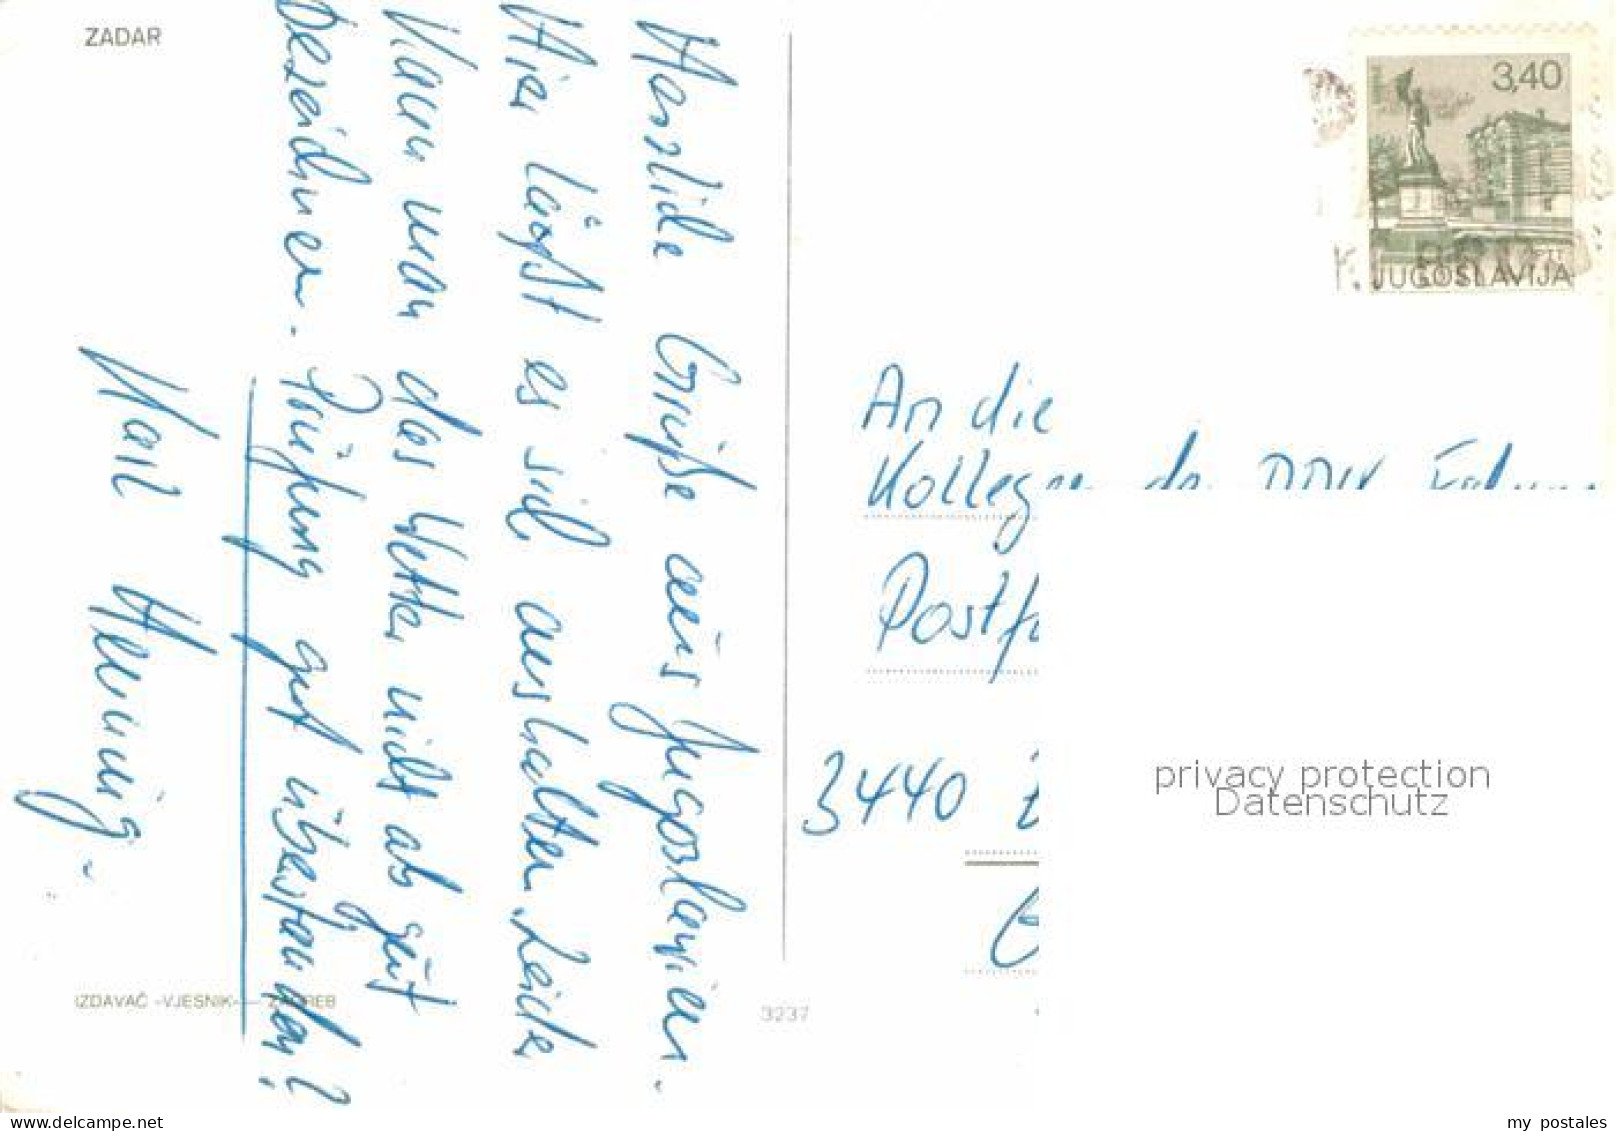 ZADAR
Herzliche Grüße aus Jugoslavien.
Hier läßt es sich aushalten. Leider
kann man das Wetter nicht als gut
bezeichnen. Prüfung gut überstanden?
Karl Henning.
IZDAVAČ »VJESNIK« — ZAGREB
3237
3,40
JUGOSLAVIJA
An die
Kollegen
3440
privacy protection
Datenschutz
www.delcampe.net
my_postales